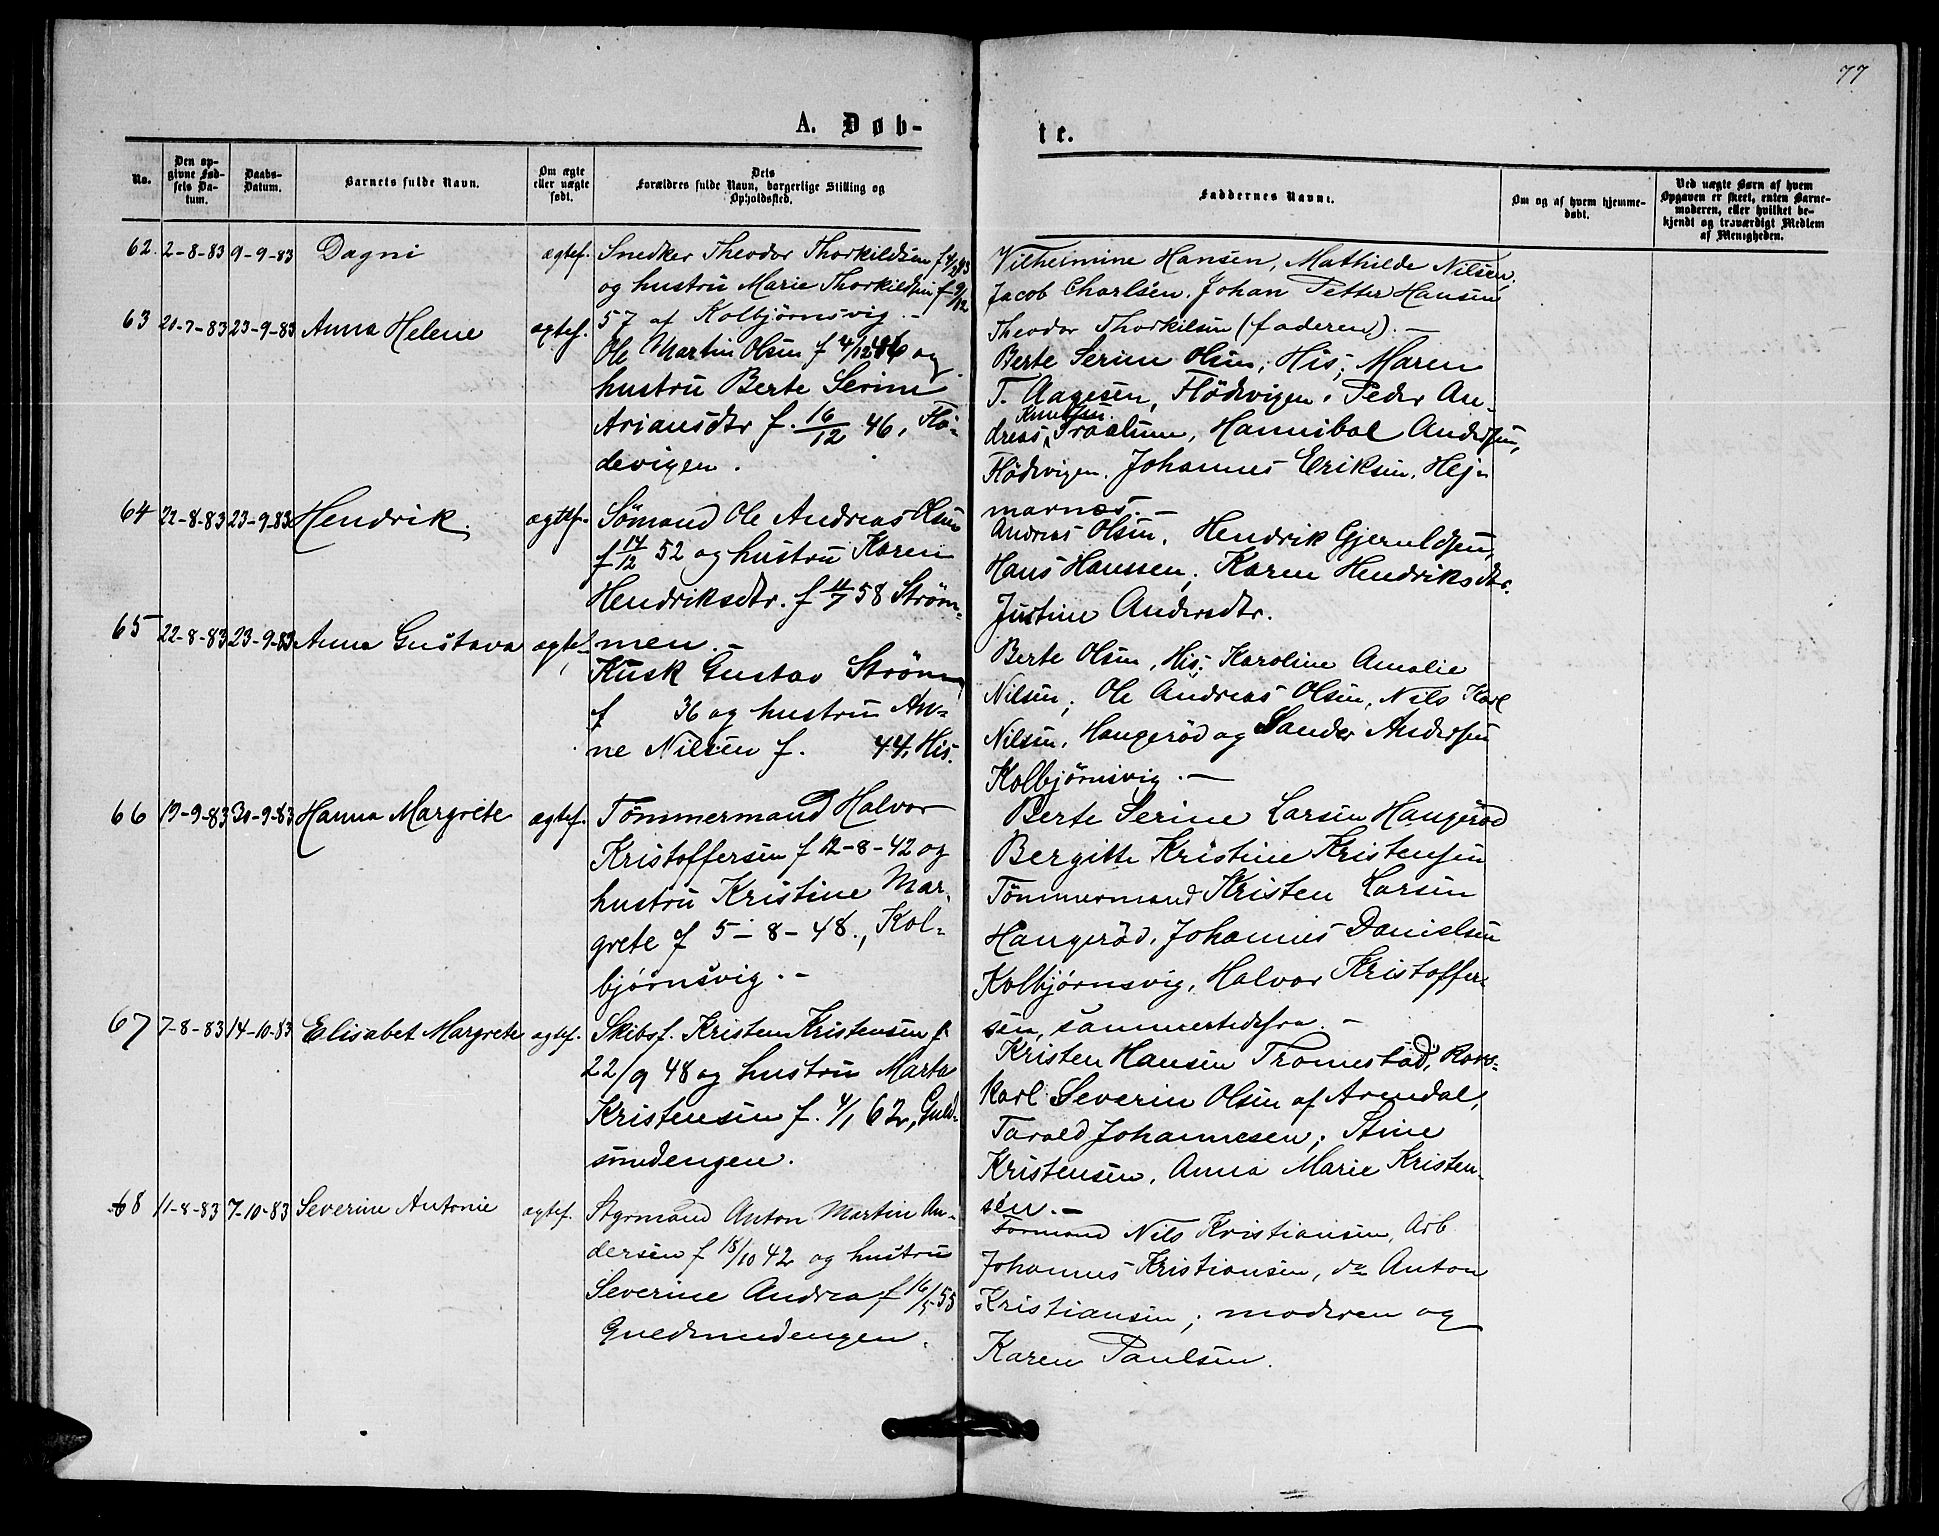 77
A. Døb-
te.
No.
Den op-
givne Fød-
sels Da-
tum.
Daabs-
Datum.
Barnets fulde Navn.
Om ægte
eller uægte
født.
Dets
Forældres fulde Navn, borgerlige Stilling og
Opholdssted.
Faddernes Navne.
Om og af hvem hjemme-
døbt.
Ved uægte Børn af hvem
Opgaven er skeet, enten Barne-
moderen, eller hvilket be-
kjendt og troværdigt Medlem
af Menigheden.
62. 2-8-83 9-9-83 Dagni ægtef.
Snedker Theodor Thorkildsen f
og hustru Marie Thorkildsen f 9/12
57 af Kolbjørnsvig.-
Vilhermine Hansen, Mathilde Nilsen,
Jacob Charlsen. Johan Petter Hansen
Theodor Thorkilsen (faderen).-
63 21-7-83 23-9-83 Anna Helene ægtef.
Ole Martin Olsen f 4/12 46 og
hustru Berte Serine
Ariansdtr f. 16/12 46, Flø-
devigen.
Berte Serine Olsen, His; Maren
T. Aagesen, Flødevigen. Peder An-
Knudsen.
dreas Traalum, Hannibal Andersen,
Flødevigen. Johannes Eriksen. Hej-
marnæs.-
64 22-8-83 23-9-83 Hendrik. ægtef.
Sømand Ole Andreas Olsen
f 14/12 52 og hustru Karen
Hendriksdtr. f 4/7 58 Strøm-
men.-
Andreas Olsen. Hendrik Gjeruldsen,
Hans Hanssen; Karen Hendriksdtr.
Justine Andersdtr.
65 22-8-83 23-9-83 Anna Gustava ægtef.
Kusk Gustav Strøm
f 36 og hustru An-
ne Nilsen f. 44, His.
Berte Olsen, His; Karoline Amalie
Nilsen; Ole Andreas Olsen, Nils Karl
Nilsen, Haugerød og Sander Andersen
Kolbjørnsvig.-
66 19-9-83 30-9-83 Hanna Margrete ægtef.
Tømmermand Halvor
Kristoffersen f 12-8-42 og
hustru Kristine Mar-
grete f 5-8-48., Kol-
bjørnsvig.-
Berte Serine Larsen Haugerød
Bergitte Kristine Kristensen
Tømmermand Kristen Larsen
Haugerød, Johannes Danielsen
Kolbjørnsvig, Halvor Kristoffer-
sen, sammestedsfra.-
67 7-8-83 14-10-83 Elisabet Margrete ægtef.
Skibsf. Kristen Kristensen f
22/9 48 og hustru Marta
Kristensen f. 4/1 62, Guld-
smedengen.
Kristen Hansen Tromestad,
Karl Severin Olsen af Arendal,
Tarald Johannesen; Stine
Kristensen, Anna Marie Kristen-
sen.-
68 11-8-83 7-10-83 Severine Antonie ægtef.
Styrmand Anton Martin An-
dersen f 18/10 42 og hustru
Severine Andrea f 16/5 55
Guldsmedengen.
Formand Nils Kristiansen, Arb
Johannes Kristiansen, do Anton
Kristiansen; moderen og
Karen Paulsen.